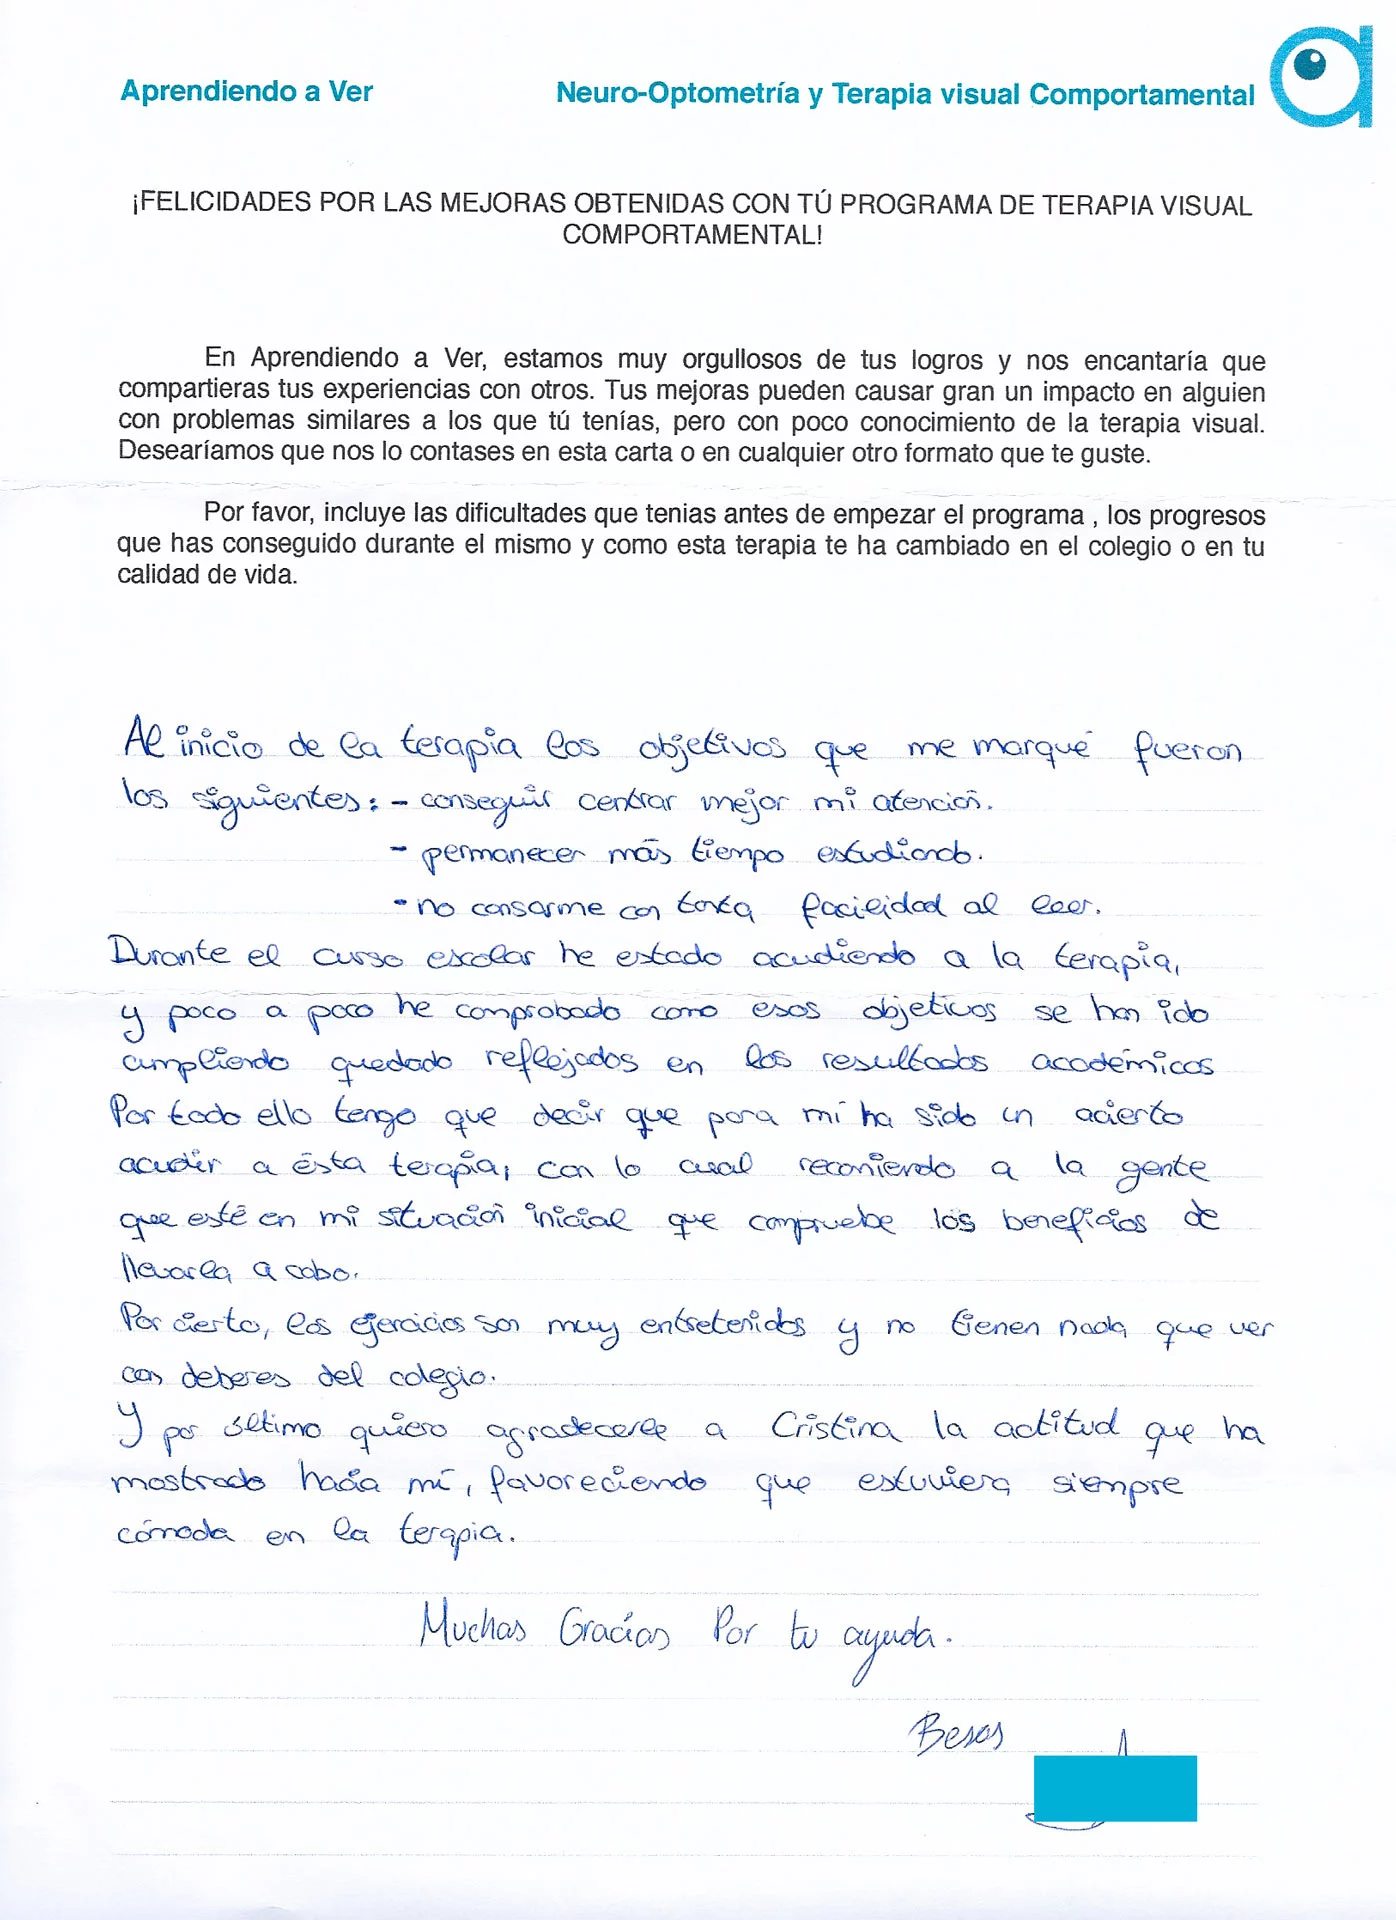 Aprendiendo a Ver Neuro-Optometría y Terapia visual Comportamental
¡FELICIDADES POR LAS MEJORAS OBTENIDAS CON TÚ PROGRAMA DE TERAPIA VISUAL
COMPORTAMENTAL!
En Aprendiendo a Ver, estamos muy orgullosos de tus logros y nos encantaría que
compartieras tus experiencias con otros. Tus mejoras pueden causar gran un impacto en alguien
con problemas similares a los que tú tenías, pero con poco conocimiento de la terapia visual.
Desearíamos que nos lo contases en esta carta o en cualquier otro formato que te guste.
Por favor, incluye las dificultades que tenias antes de empezar el programa , los progresos
que has conseguido durante el mismo y como esta terapia te ha cambiado en el colegio o en tu
calidad de vida.
Al inicio de la terapia los objetivos que me marqué fueron
los siguientes: - conseguir centrar mejor mi atención.
- permanecer más tiempo estudiando.
- no cansarme con tanta facilidad al leer.
Durante el curso escolar he estado acudiendo a la terapia,
y poco a poco he comprobado como esos objetivos se han ido
cumpliendo quedado reflejados en los resultados académicos
Por todo ello tengo que decir que para mí ha sido un acierto
acudir a ésta terapia, con lo cual recomiendo a la gente
que esté en mi situación inicial que compruebe los beneficios de
llevarla a cabo.
Por cierto, los ejercicios son muy entretenidos y no tienen nada que ver
con deberes del colegio.
Y por último quiero agradecerle a Cristina la actitud que ha
mostrado hacia mí, favoreciendo que estuviera siempre
cómoda en la terapia.
Muchas Gracias Por tu ayuda.
Besos